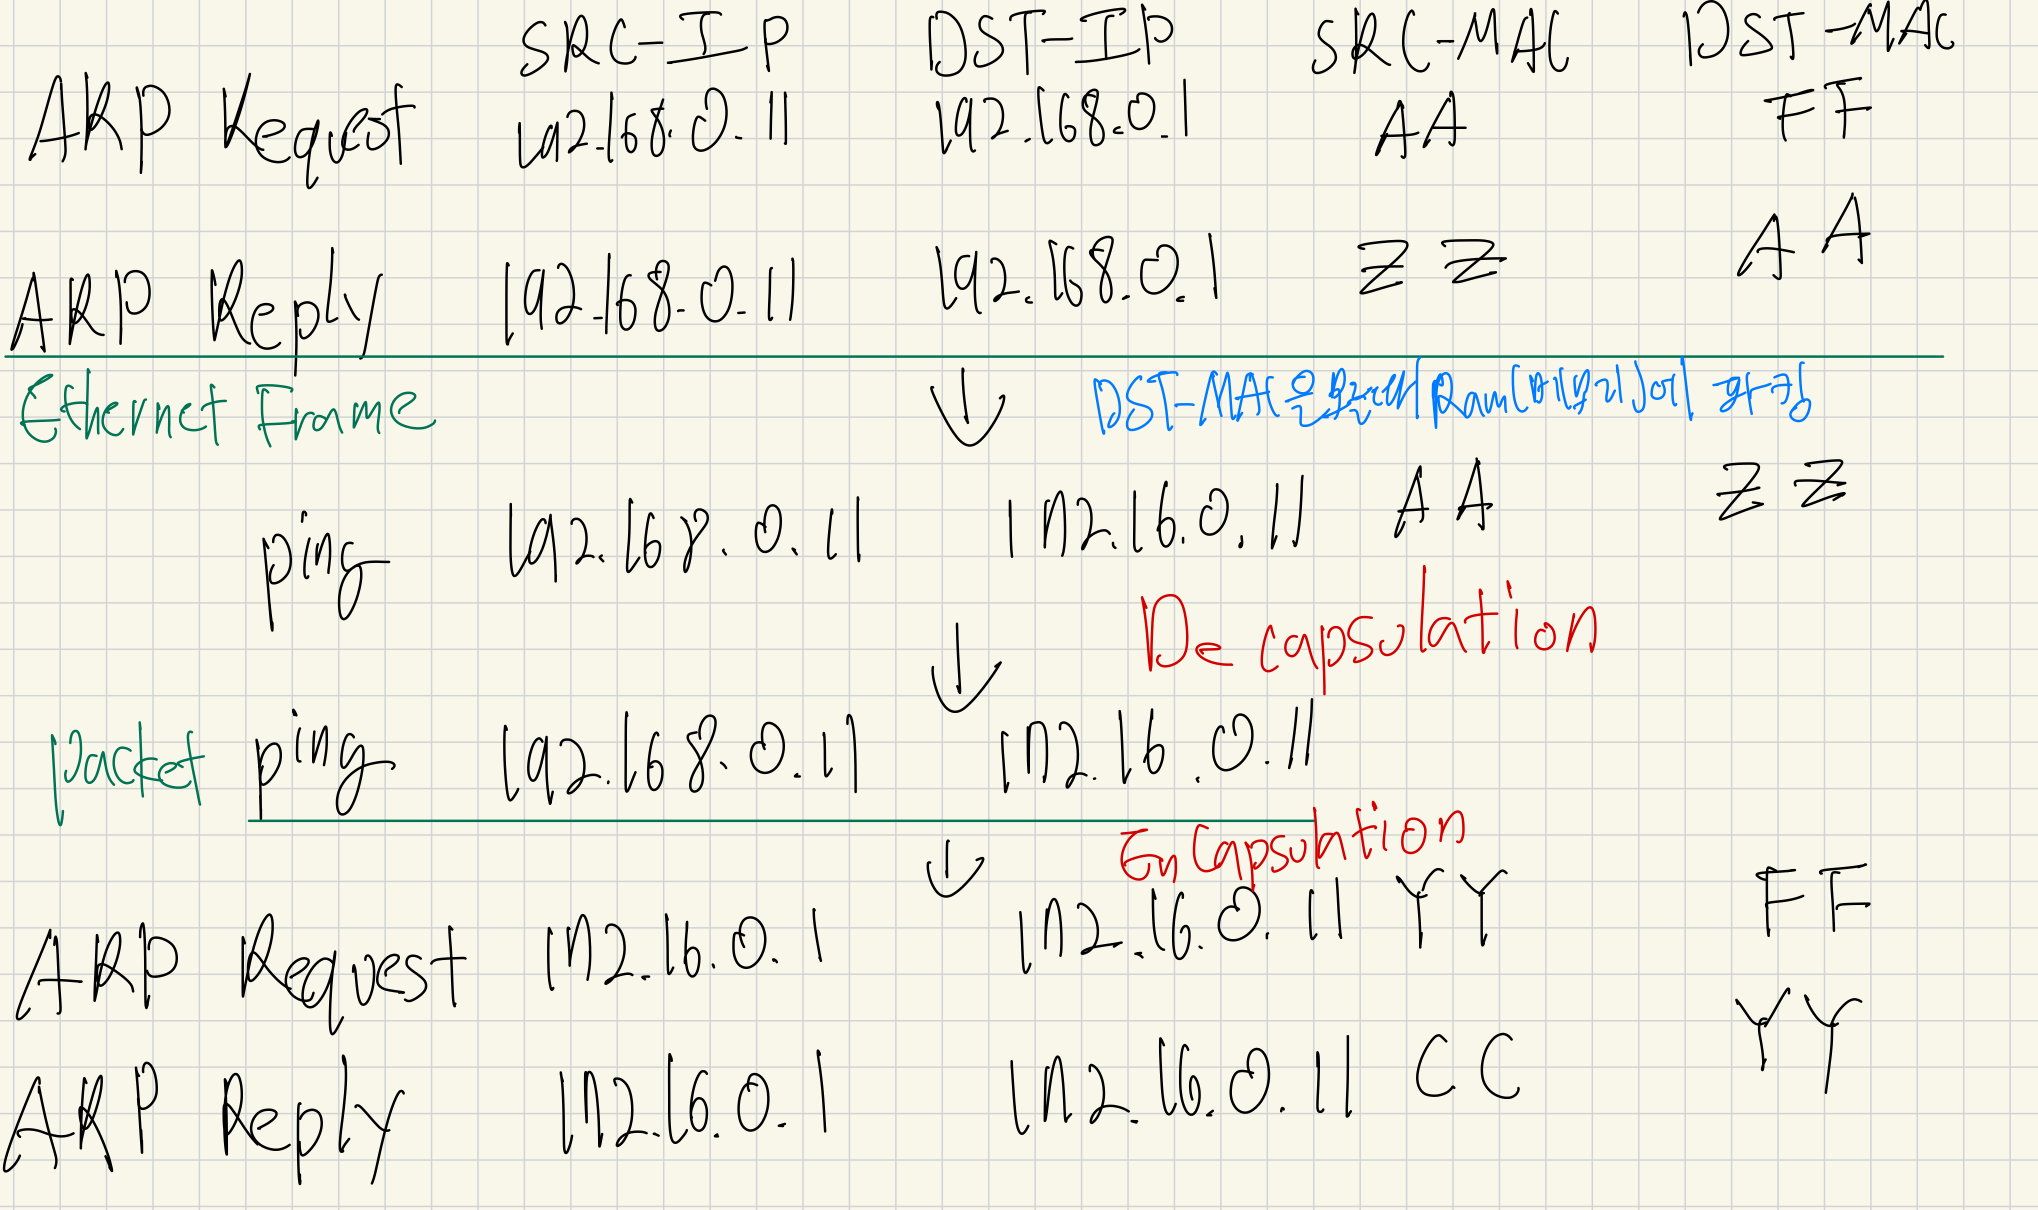 SRC-IP DST-IP SRC-MAC DST-MAC
ARP Request 192.168.0.11 192.168.0.1 AA FF
ARP Reply 192.168.0.11 192.168.0.1 ZZ AA
Ethernet Frame DST-MAC Ram
ping 192.168.0.11 172.16.0.11 AA ZZ
De capsulation
packet ping 192.168.0.11 172.16.0.11
En Capsulation
ARP Request 172.16.0.1 172.16.0.11 YY FF
ARP Reply 172.16.0.1 172.16.0.11 CC YY